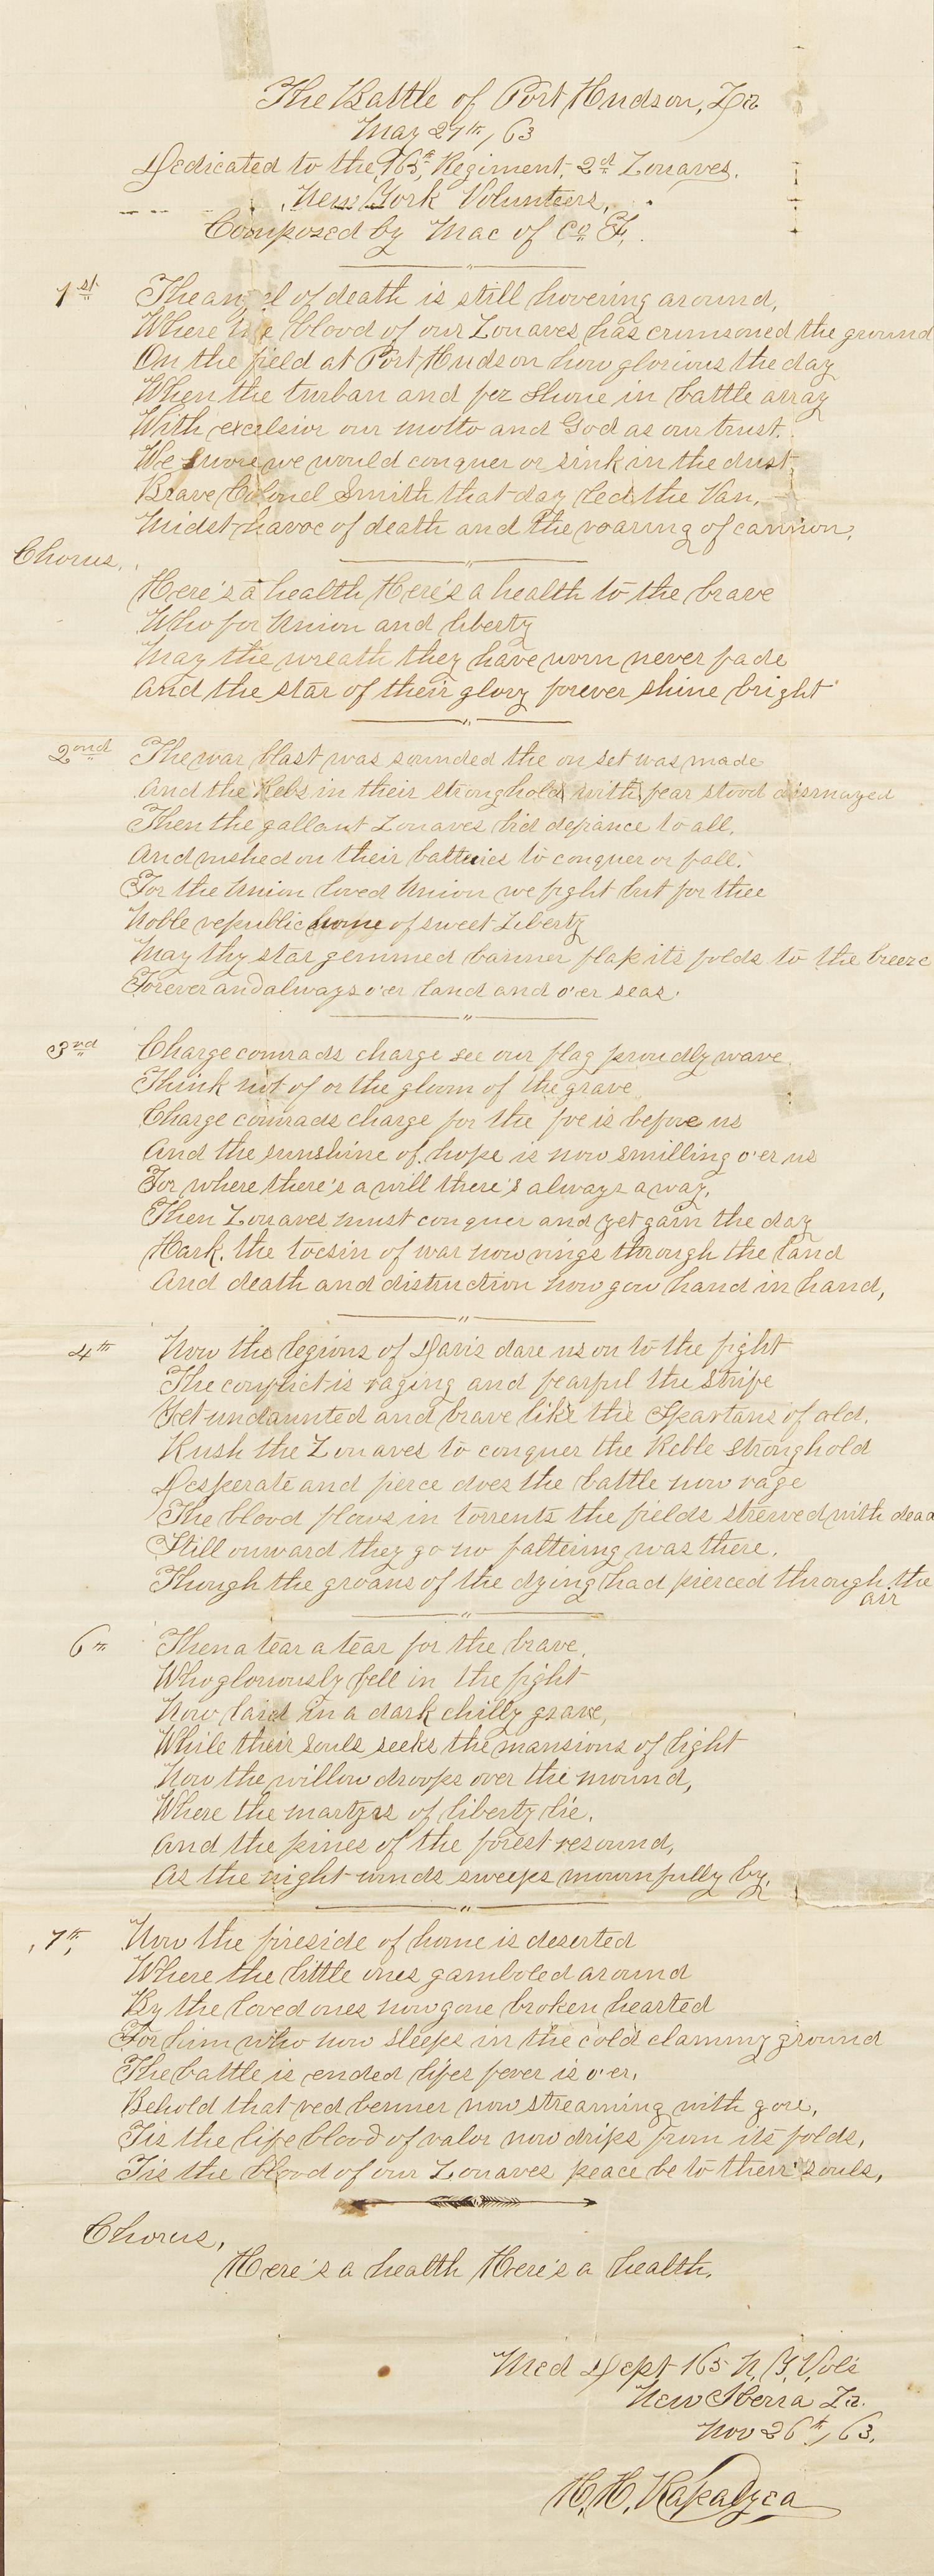 The Battle of Port Hudson, La
May 27th, / 63
Dedicated to the 165th, Regiment, 2nd Zouaves.
New York Volunteers,
Composed by Mac of Co F.
1st The angel of death is still hovering around,
Where the blood of our Zouaves has crimsoned the ground
On the field at Port Hudson how glorious the day
When the turban and fez shone in battle array
With excelsior our motto and God as our trust.
We swore we would conquer or sink in the dust,
Brave Colonel Smith that day led the Van,
Midst havoc of death and the roaring of cannon,
Chorus,
Here's a health Here's a health to the brave
Who for Union and liberty
May the wreath they have worn never fade
And the star of their glory forever shine bright
2ond The war blast was sounded the on set was made
And the Rebs in their stronghold with fear stood dismayed
Then the gallant Zouaves bid defiance to all,
And rushed on their batteries to conquer or fall.
For the Union loved Union we fight but for thee
Noble republic home of sweet Liberty
May thy star gemmed banner flap its folds to the breeze
Forever and always o'er land and o'er seas.
3nd Charge comrads charge see our flag proudly wave
Think not of or the gloom of the grave
Charge comrads charge for the foe is before us
And the sunshine of hope is now smilling o'er us
For where there's a will there's always a way,
Then Zouaves must conquer and yet gain the day
Hark. the tocsin of war now rings through the land
And death and distruction now gow hand in hand,
4th Now the legions of Davis dare us on to the fight
The conflict is raging and fearful the strife
Yet undaunted and brave like the Spartans of old,
Rush the Zouaves to conquer the Reble stronghold
Desperate and fierce does the battle now rage
The blood flows in torrents the fields strewed with dead
Still onward they go no faltering was there,
Though the groans of the dying had pierced through the
air
6th Then a tear a tear for the brave,
Who gloriously fell in the fight
Now laid in a dark chilly grave,
While their souls seeks the mansions of light
Now the willow droops over the mound,
Where the martyrs of liberty lie,
And the pines of the forest resound,
As the night winds sweeps mournfully by,
7th, Now the fireside of home is deserted
Where the little ones gamboled around
By the loved ones now gone broken hearted
For him who now sleeps in the cold clammy ground
The battle is ended lifes fever is o'er,
Behold that red benner now streaming with gore,
Tis the life blood of valor now drips from its folds,
Tis the blood of our Zouaves peace be to their souls,
Chorus,
Here's a health Here's a health,
Med Dept 165 N. Y. Vols
New Iberia La.
Nov 26th, / 63,